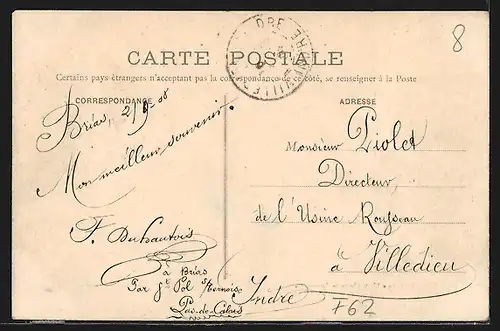 8
CARTE POSTALE
Certains pays étrangers n'acceptant pas la correspondance de ce côté, se renseigner à la Poste
CORRESPONDANCE
Brias, 08
Mon meilleur souvenir.
F. Duhautois
à Brias
Par St Pol s/Ternoise
Pas-de-Calais
ADRESSE
Monsieur Piolet
Directeur,
de l'Usine Rousseau
à Villedieu
Indre
F62